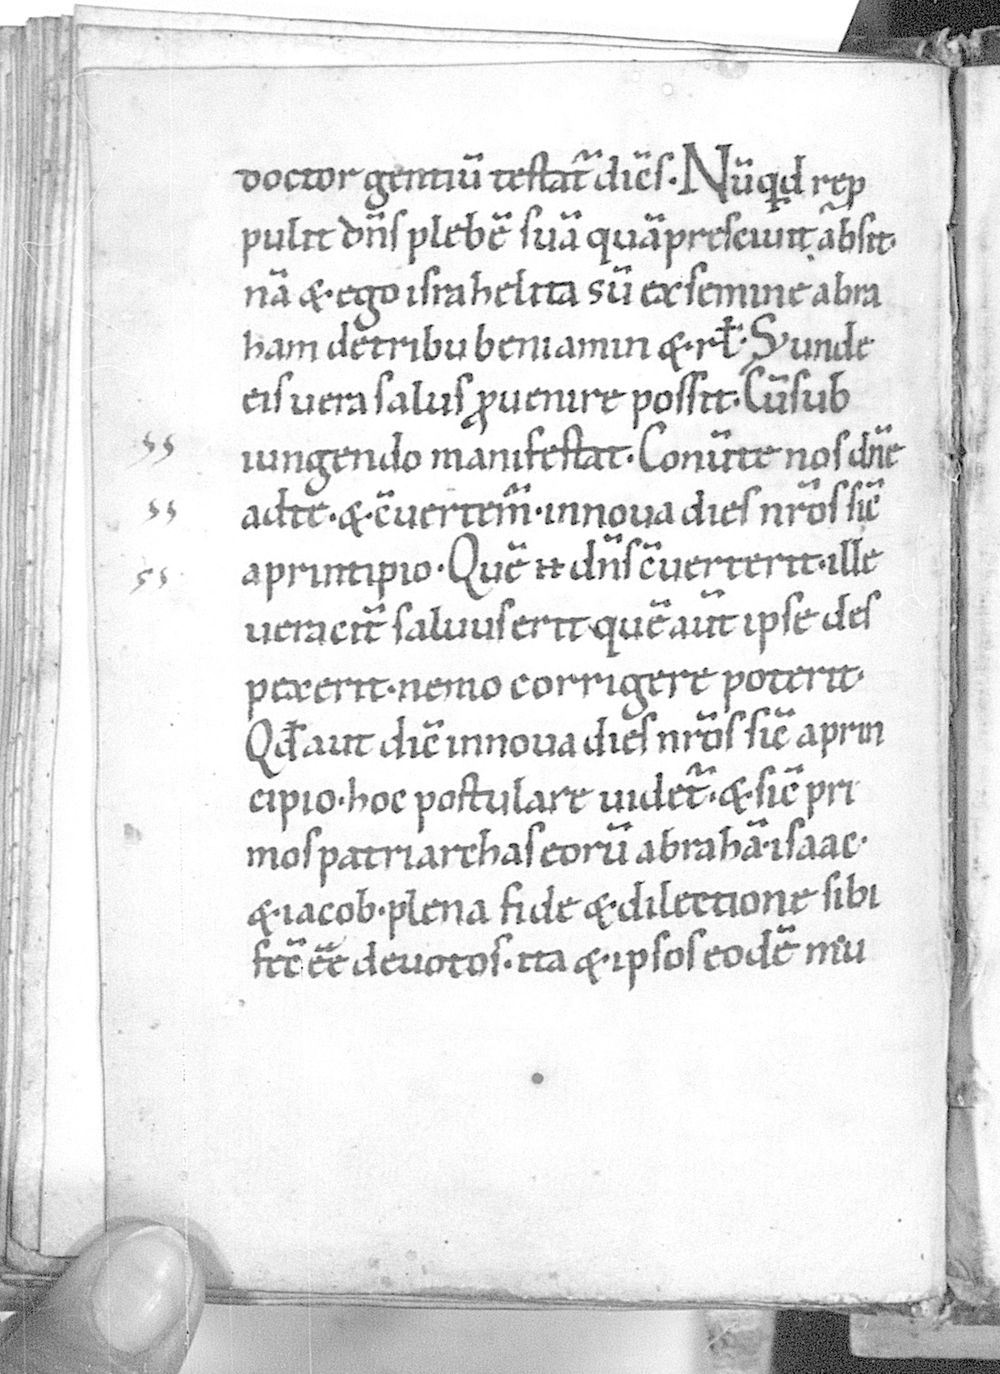 doctor gentiũ testat᷑ dic̃s. Nũqđ rep
pulit dñs plebẽ suã quã presciuit absit.
nã &. ego israhelita sũ ex semine abra
ham de tribu beniamin &. rł. Sy unde
eis uera salus ꝓuenire possit. Cũ sub
iungendo manifestat. Conũte nos dñe
ad te. &. c̃uertem̃. innoua dies nr̃os sic̃
a principio. Quẽ ħ dñs c̃uerterit. ille
ueracit̃ saluus erit. quẽ aũt ipse des
pexerit. nemo corrigere poterit.
Qđ aut dic̃ innoua dies nr̃os sic̃ a prin
cipio. hoc postulare uidet᷑. &. sic̃ pri
mos patriarchas eorũ abrahã. isaac.
&. iacob. plena fide &. dilectione sibi
fec̃ eẽ deuotos. ita &. ipsos eodẽ mu